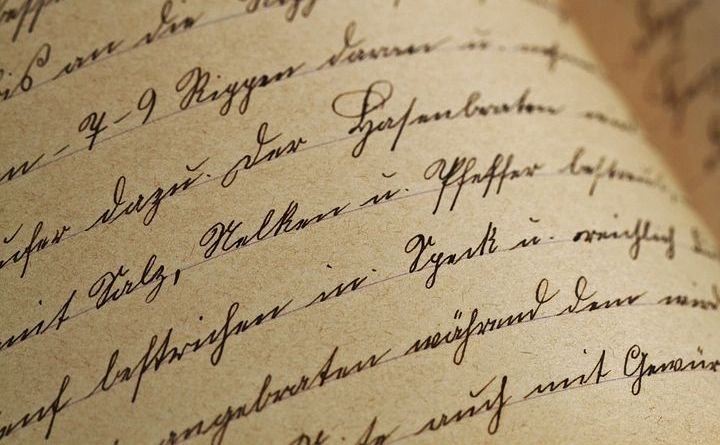 bis an die
7-9 Rippen daran u.
dazu. Der Hasenbraten
mit Salz, Nelken u. Pfeffer bestreut,
bestrichen in. Speck u. reichlich
angebraten während dem wird
auch mit Gewür